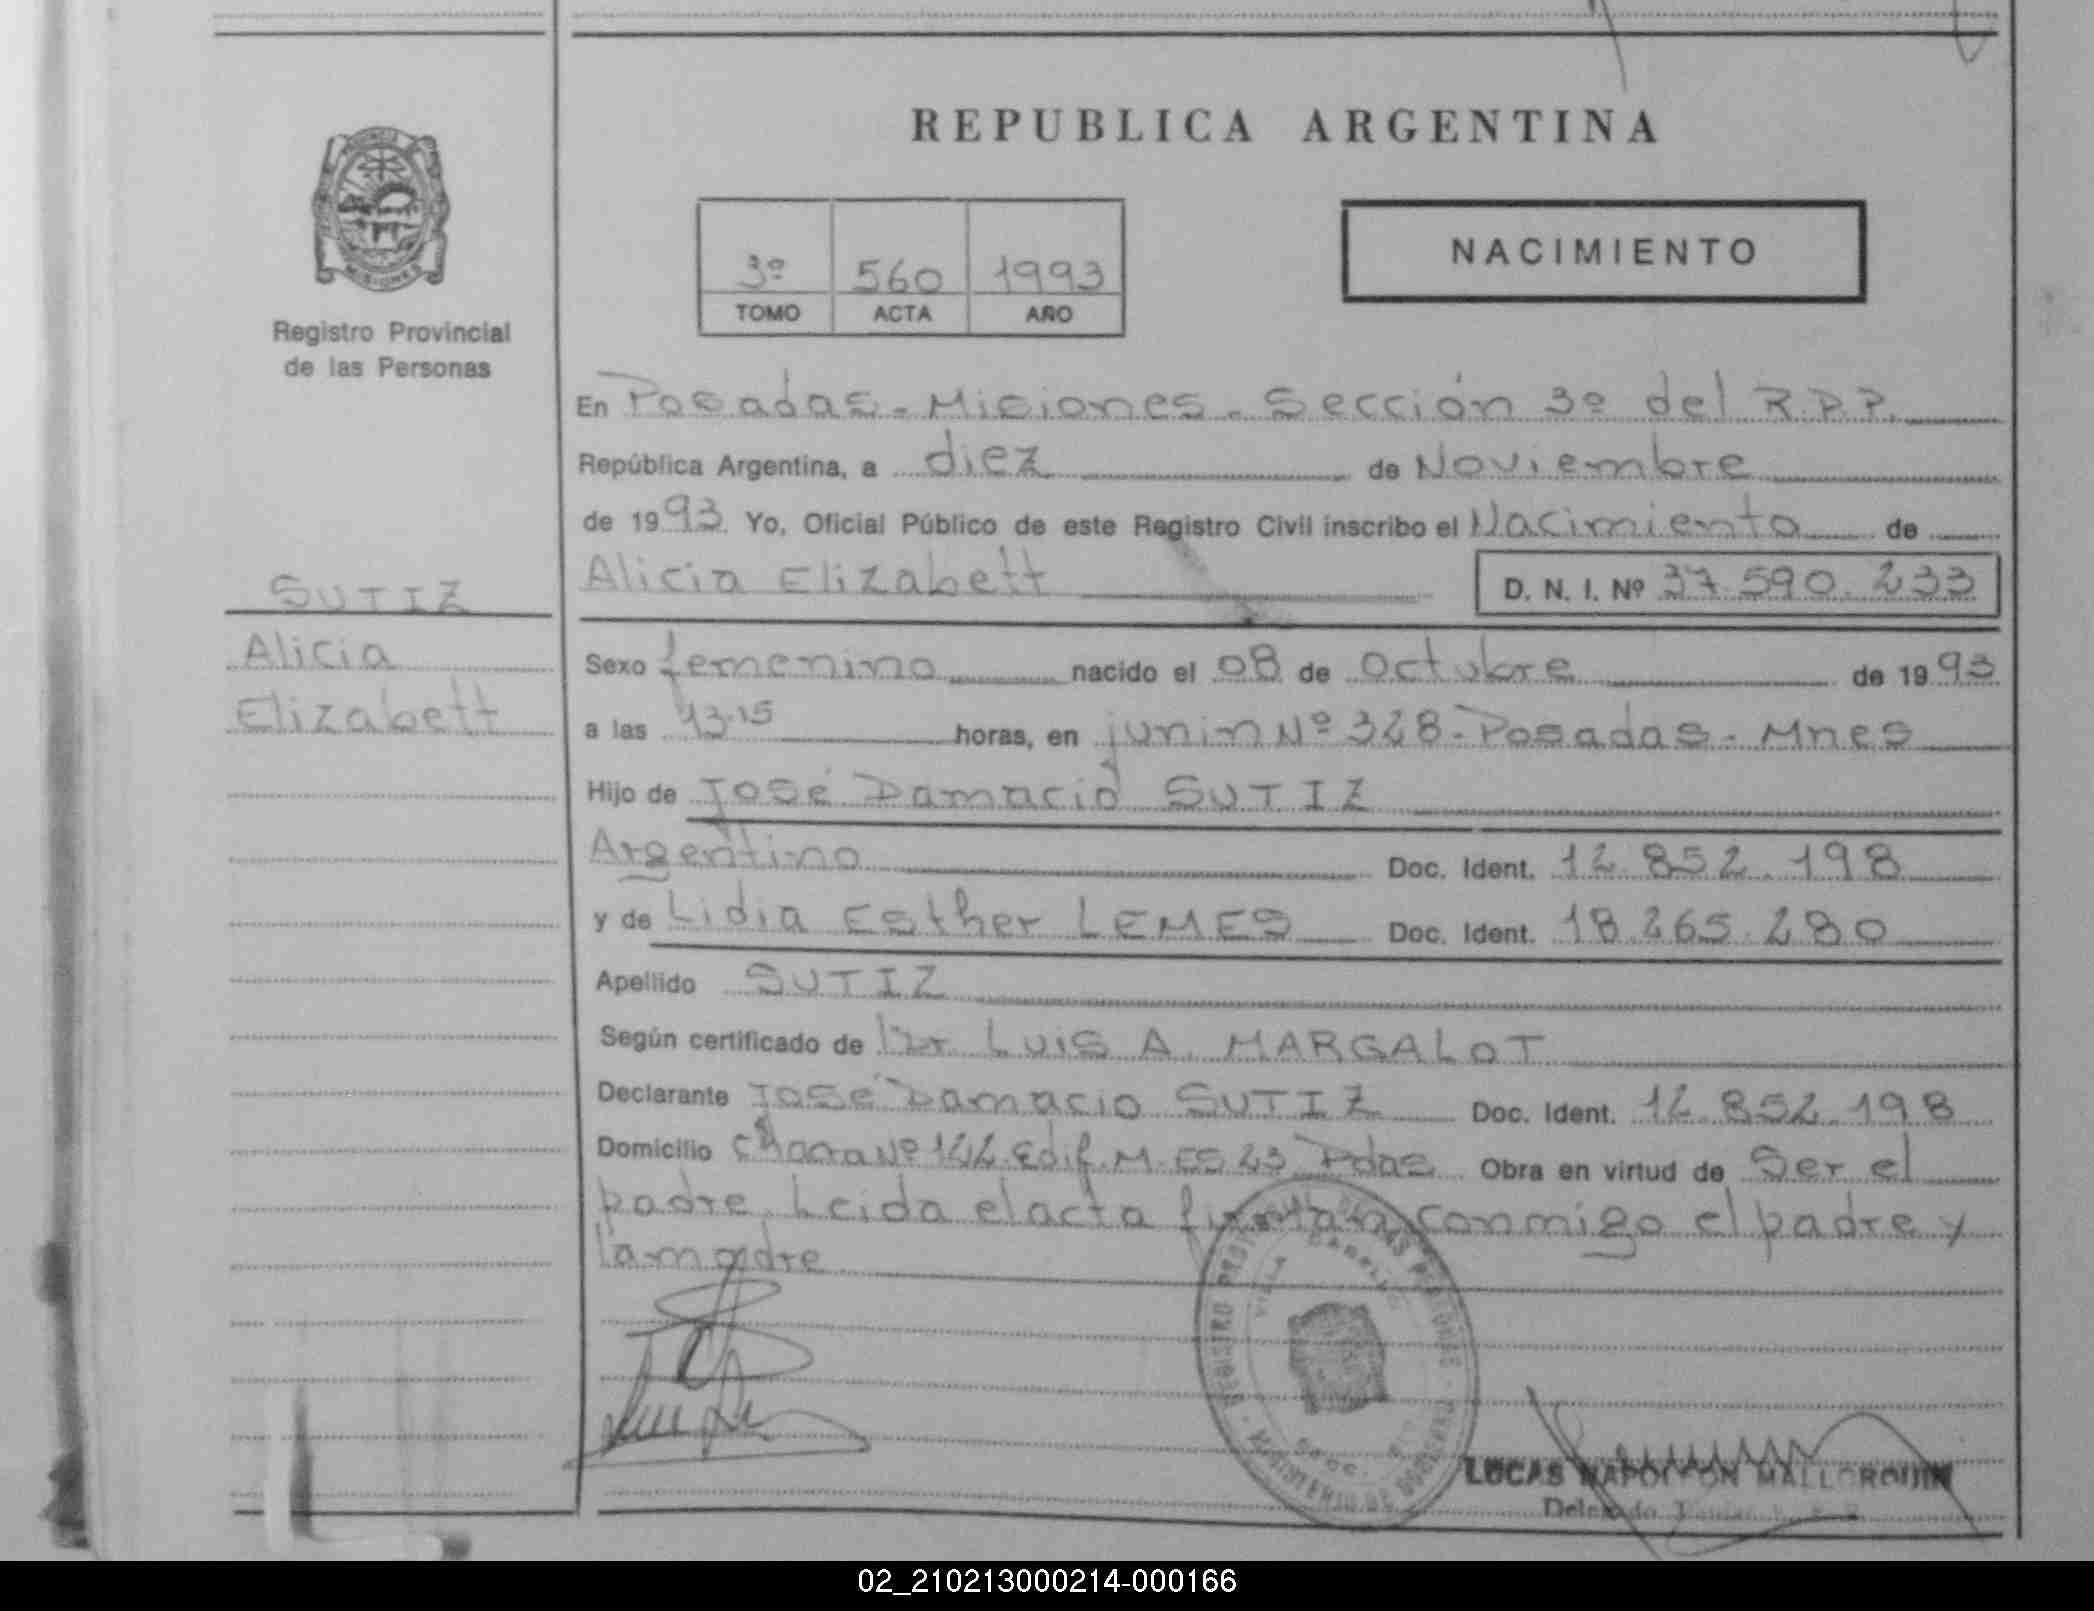 REPUBLICA ARGENTINA
3º 560 1993
TOMO ACTA AÑO
NACIMIENTO
MISIONES
Registro Provincial
de las Personas
SUTIZ
Alicia
Elizabett
En Posadas - Misiones - Sección 3º del R.P.P.
República Argentina, a diez de Noviembre
de 1993. Yo, Oficial Público de este Registro Civil inscribo el Nacimiento de
Alicia Elizabett D. N. I. Nº 37.590.233
Sexo femenino nacido el 08 de Octubre de 1993
a las 13.15 horas, en junin Nº 328 - Posadas - Mnes
Hijo de José Damacio SUTIZ
Argentino Doc. Ident. 12.852.198
y de Lidia Esther LEMES Doc. Ident. 18.265.280
Apellido SUTIZ
Según certificado de Dr LUIS A. MARGALOT
Declarante José Damacio SUTIZ Doc. Ident. 12.852.198
Domicilio Chacra Nº 122 Edif. M. ES 23 Pdas Obra en virtud de Ser el
padre. Leida el acta firman conmigo el padre y
la madre
REGISTRO PROVINCIAL DE LAS PERSONAS
VILLA CABELLO
MINISTERIO DE GOBIERNO
LUCAS NAPOLEON MALLORQUIN
Delegado
02_210213000214-000166